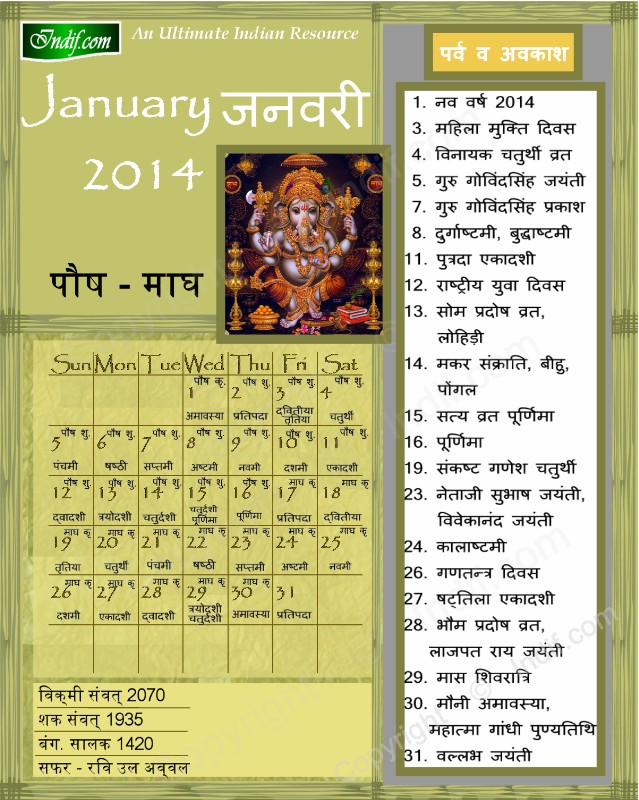 Indif.com An Ultimate Indian Resource
January जनवरी
2014
पौष - माघ
Sun Mon Tue Wed Thu Fri Sat
पौष कृ. पौष शु. पौष शु. पौष शु.
1 2 3 4
अमावस्या प्रतिपदा द्वितीया तृतिया चतुर्थी
पौष शु. पौष शु. पौष शु. पौष शु. पौष शु. पौष शु. पौष शु.
5 6 7 8 9 10 11
पंचमी षष्ठी सप्तमी अष्टमी नवमी दशमी एकादशी
पौष शु. पौष शु. पौष शु. पौष शु. पौष शु. माघ कृ माघ कृ
12 13 14 15 16 17 18
द्वादशी त्रयोदशी चतुर्दशी चतुर्दशी पूर्णिमा पूर्णिमा प्रतिपदा द्वितीया
माघ कृ माघ कृ माघ कृ माघ कृ माघ कृ माघ कृ माघ कृ
19 20 21 22 23 24 25
तृतिया चतुर्थी पंचमी षष्ठी सप्तमी अष्टमी नवमी
माघ कृ माघ कृ माघ कृ माघ कृ माघ कृ
26 27 28 29 30 31
दशमी एकादशी द्वादशी त्रयोदशी चतुर्दशी अमावस्या प्रतिपदा
विक्मी संवत् 2070
शक संवत् 1935
बंग. सालक 1420
सफर - रवि उल अव्वल
पर्व व अवकाश
1. नव वर्ष 2014
3. महिला मुक्ति दिवस
4. विनायक चतुर्थी व्रत
5. गुरु गोविंदसिंह जयंती
7. गुरु गोविंदसिंह प्रकाश
8. दुर्गाष्टमी, बुद्धाष्टमी
11. पुत्रदा एकादशी
12. राष्ट्रीय युवा दिवस
13. सोम प्रदोष व्रत,
लोहिड़ी
14. मकर संक्राति, बीहु,
पोंगल
15. सत्य व्रत पूर्णिमा
16. पूर्णिमा
19. संकष्ट गणेश चतुर्थी
23. नेताजी सुभाष जयंती,
विवेकानंद जयंती
24. कालाष्टमी
26. गणतन्त्र दिवस
27. षट्तिला एकादशी
28. भौम प्रदोष व्रत,
लाजपत राय जयंती
29. मास शिवरात्रि
30. मौनी अमावस्या,
महात्मा गांधी पुण्यतिथि
31. वल्लभ जयंती
Copyright © Indif.com